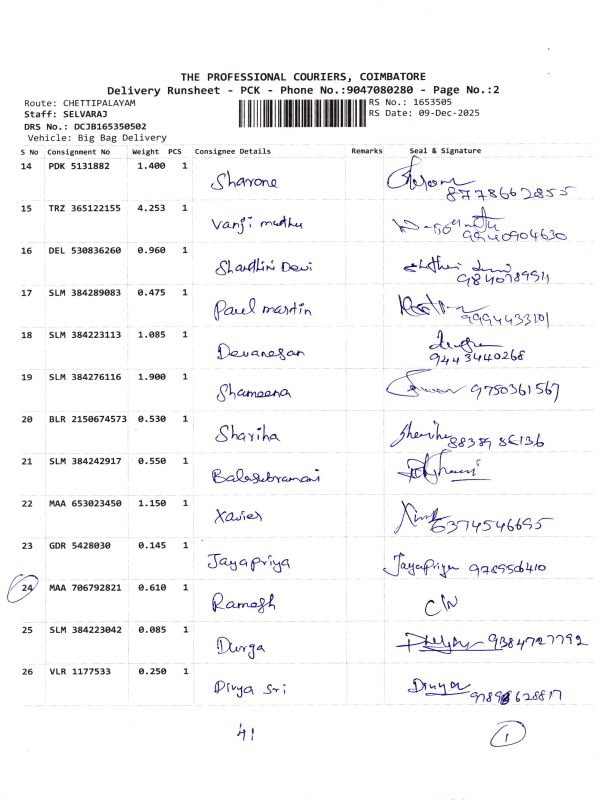 THE PROFESSIONAL COURIERS, COIMBATORE
Delivery Runsheet - PCK - Phone No.:9047080280 - Page No.:2
Route: CHETTIPALAYAM RS No.: 1653505
Staff: SELVARAJ RS Date: 09-Dec-2025
DRS No.: DCJB165350502
Vehicle: Big Bag Delivery
S No Consignment No Weight PCS Consignee Details Remarks Seal & Signature
14 PDK 5131882 1.400 1 Sharone
8778662855
15 TRZ 365122155 4.253 1 Vanji muthu
9940904630
16 DEL 530836260 0.960 1 Shanthini Devi
9840789911
17 SLM 384289083 0.475 1 Paul martin
9994433101
18 SLM 384223113 1.085 1 Devanesan
9443440268
19 SLM 384276116 1.900 1 Shameena 9750361567
20 BLR 2150674573 0.530 1 Shariha
21 SLM 384242917 0.550 1 Balasubramani
22 MAA 653023450 1.150 1 Xavier
6374546695
23 GDR 5428030 0.145 1 Jayapriya Jayapriya 9789506410
24 MAA 706792821 0.610 1 Ramesh
25 SLM 384223042 0.085 1 Durga 9384727792
26 VLR 1177533 0.250 1 Divya Sri Divya
41 1